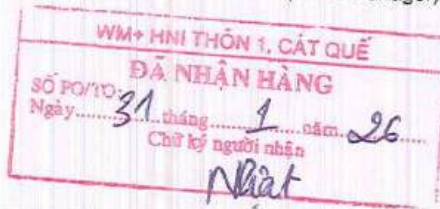 WM+ HNI THÔN 1, CÁT QUẾ
ĐÃ NHẬN HÀNG
SỐ PO/TO:
Ngày 31 tháng 1 năm 26
Chữ ký người nhận